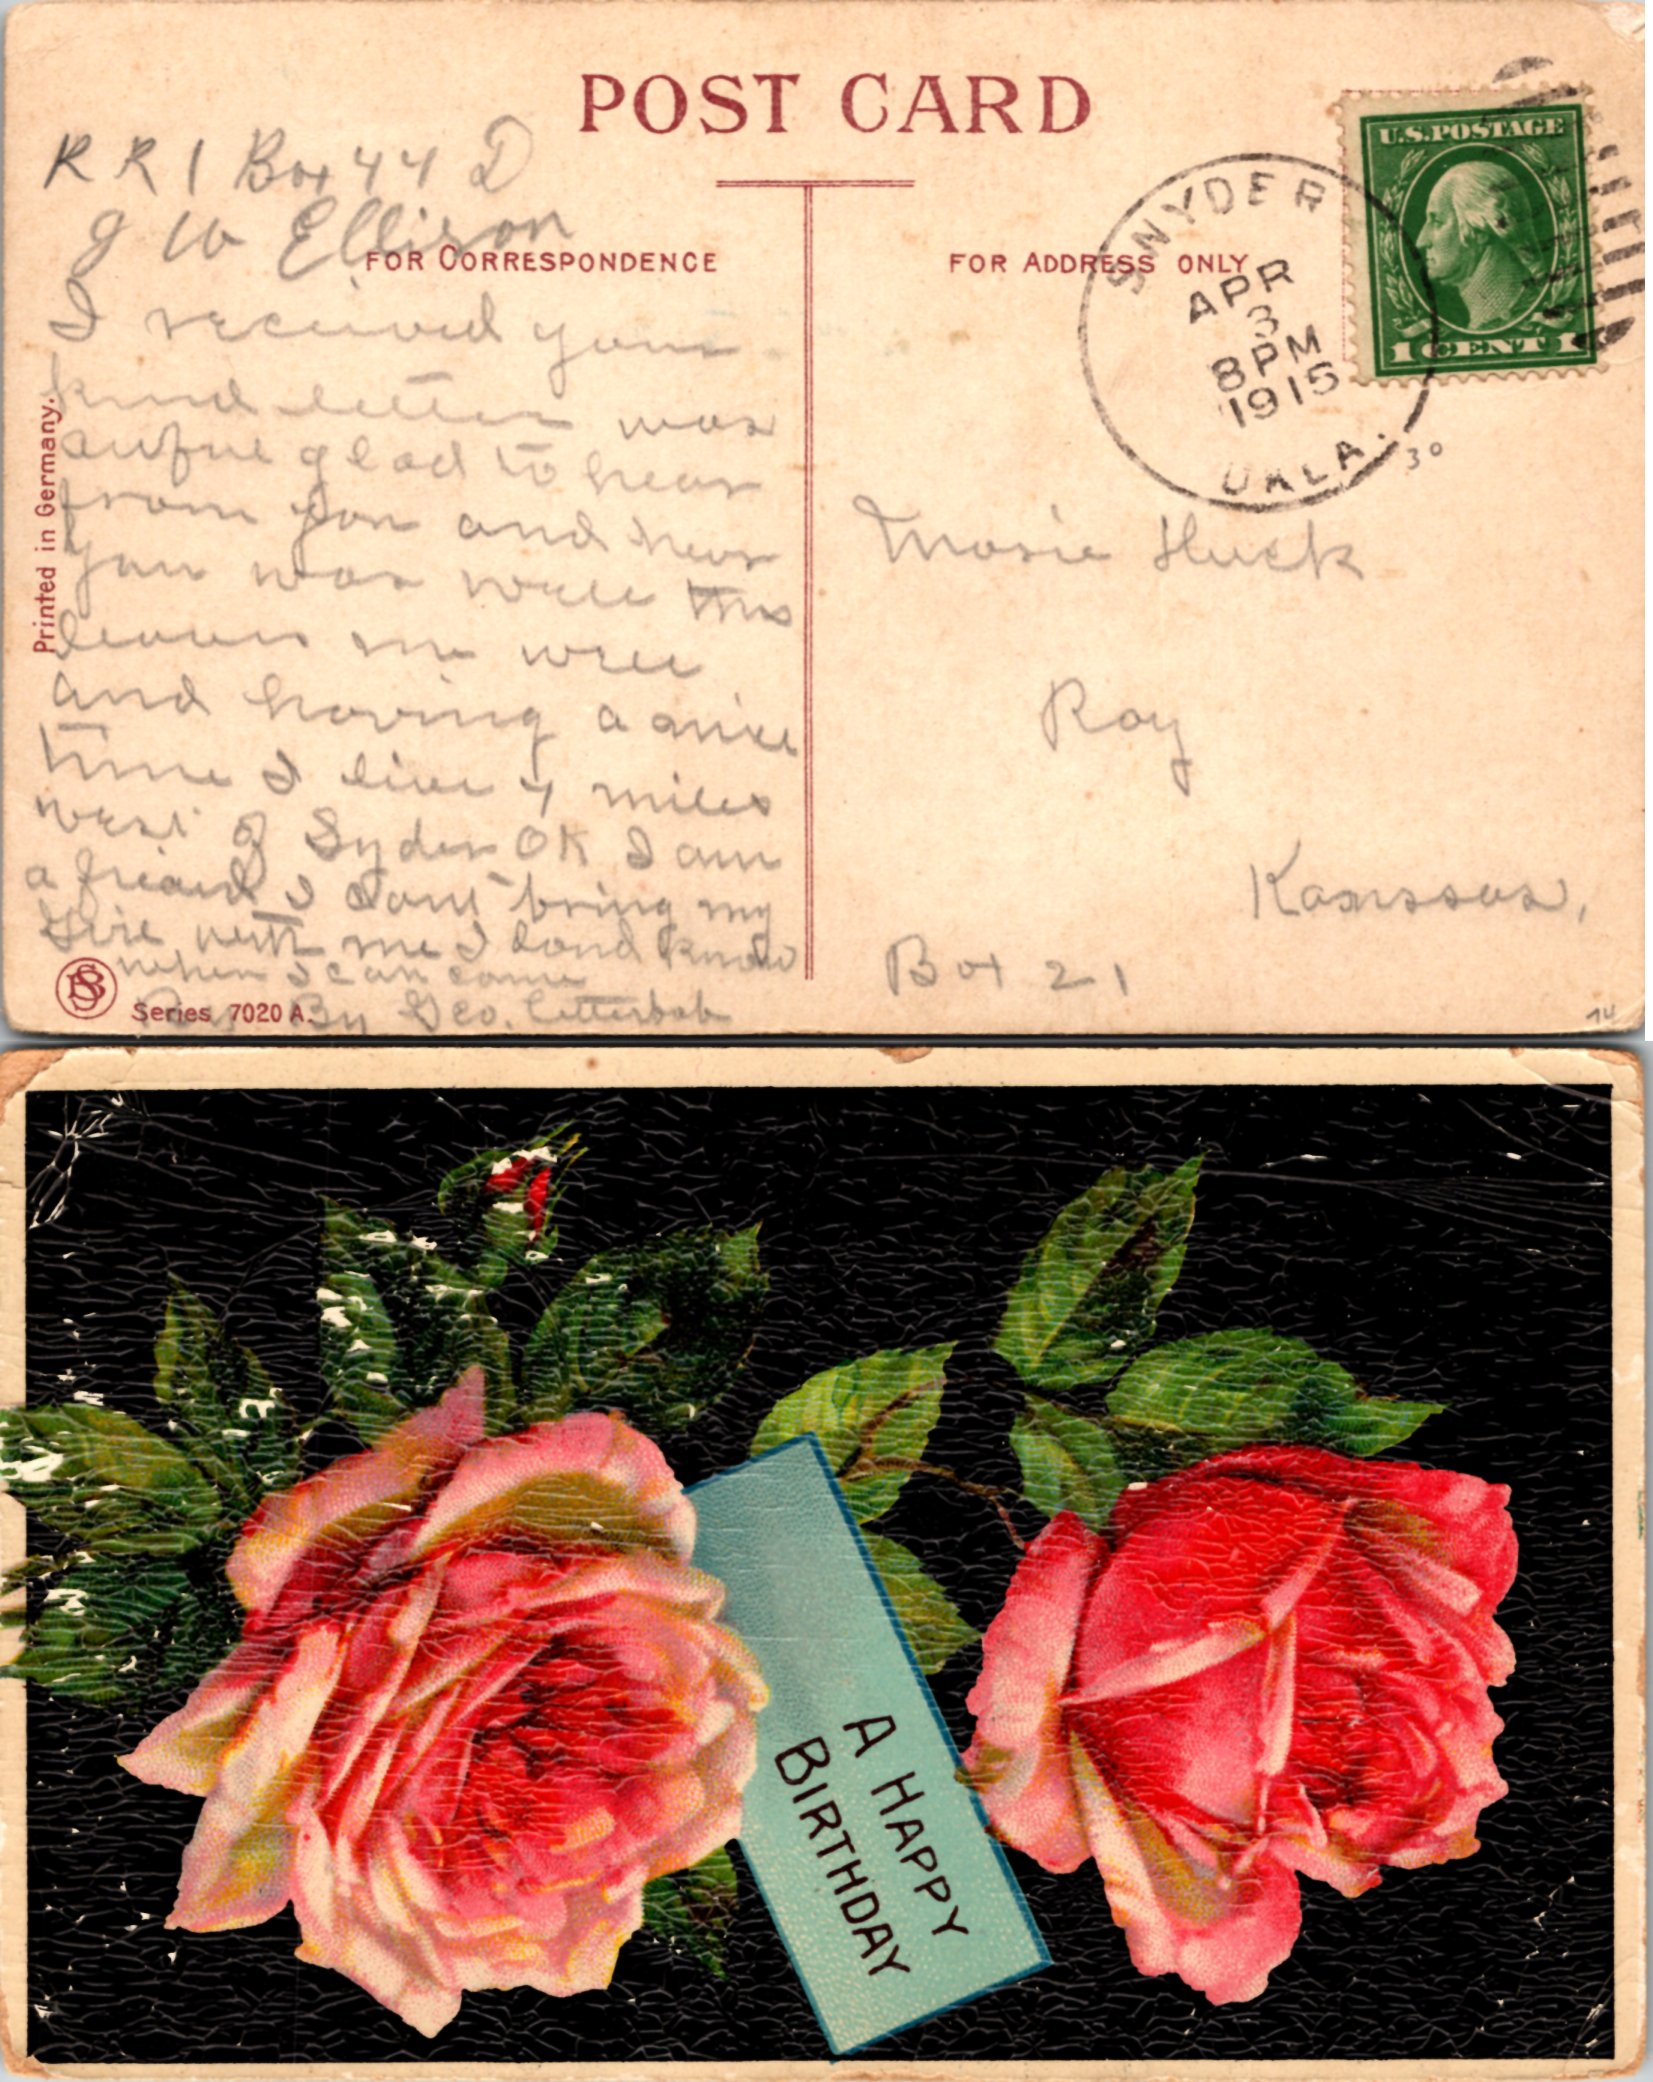 POST CARD
R R 1 Box 44 D
J W Ellison
FOR CORRESPONDENCE
FOR ADDRESS ONLY
U.S. POSTAGE
1 CENT 1
SNYDER
APR
3
8PM
1915
OKLA.
30
I received your
kind letter was
awful glad to hear
from you and hear
you was well this
leaves me well
and having a nice
time I live 4 miles
west of Syder OK I am
a friend I dont bring my
Girl with me I dond know
when I can come
By Geo. Citterbob
Printed in Germany.
BS
Series 7020 A.
Mosie Huck
Roy
Kanssas,
Box 21
14
A HAPPY
BIRTHDAY